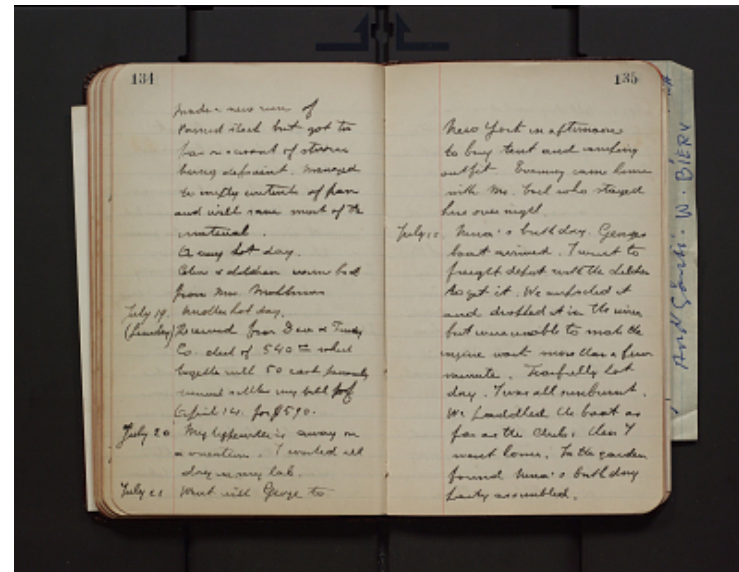 134
made a new run of
but got too
far on account of stirrer
being deficient. Managed
to empty contents of pan
and will save most of the
material.
A very hot day.
Celine & children came back
from Mrs.
July 19. Another hot day.
(Sunday) Received from
Co. check of $540 which
together with 50 cash previously
my bill of
April 14. for $590.
July 20 My typewriter is away on
a vacation. I worked all
day in my lab.
July 21 Went with George to
135
New York in afternoon
to buy tent and camping
outfit. Evening came home
with Mr. who stayed
here over night.
July 22. Nina's birthday. George
boat arrived. I went to
freight depot with the children
to get it. We unpacked it
and dropped it in the river
but were unable to make the
engine work more than a few
minutes. Fearfully hot
day. I was all sunburnt.
We paddled the boat as
far as the Club, then I
went home. In the garden
found Nina's birthday
party assembled.
W. BIERV